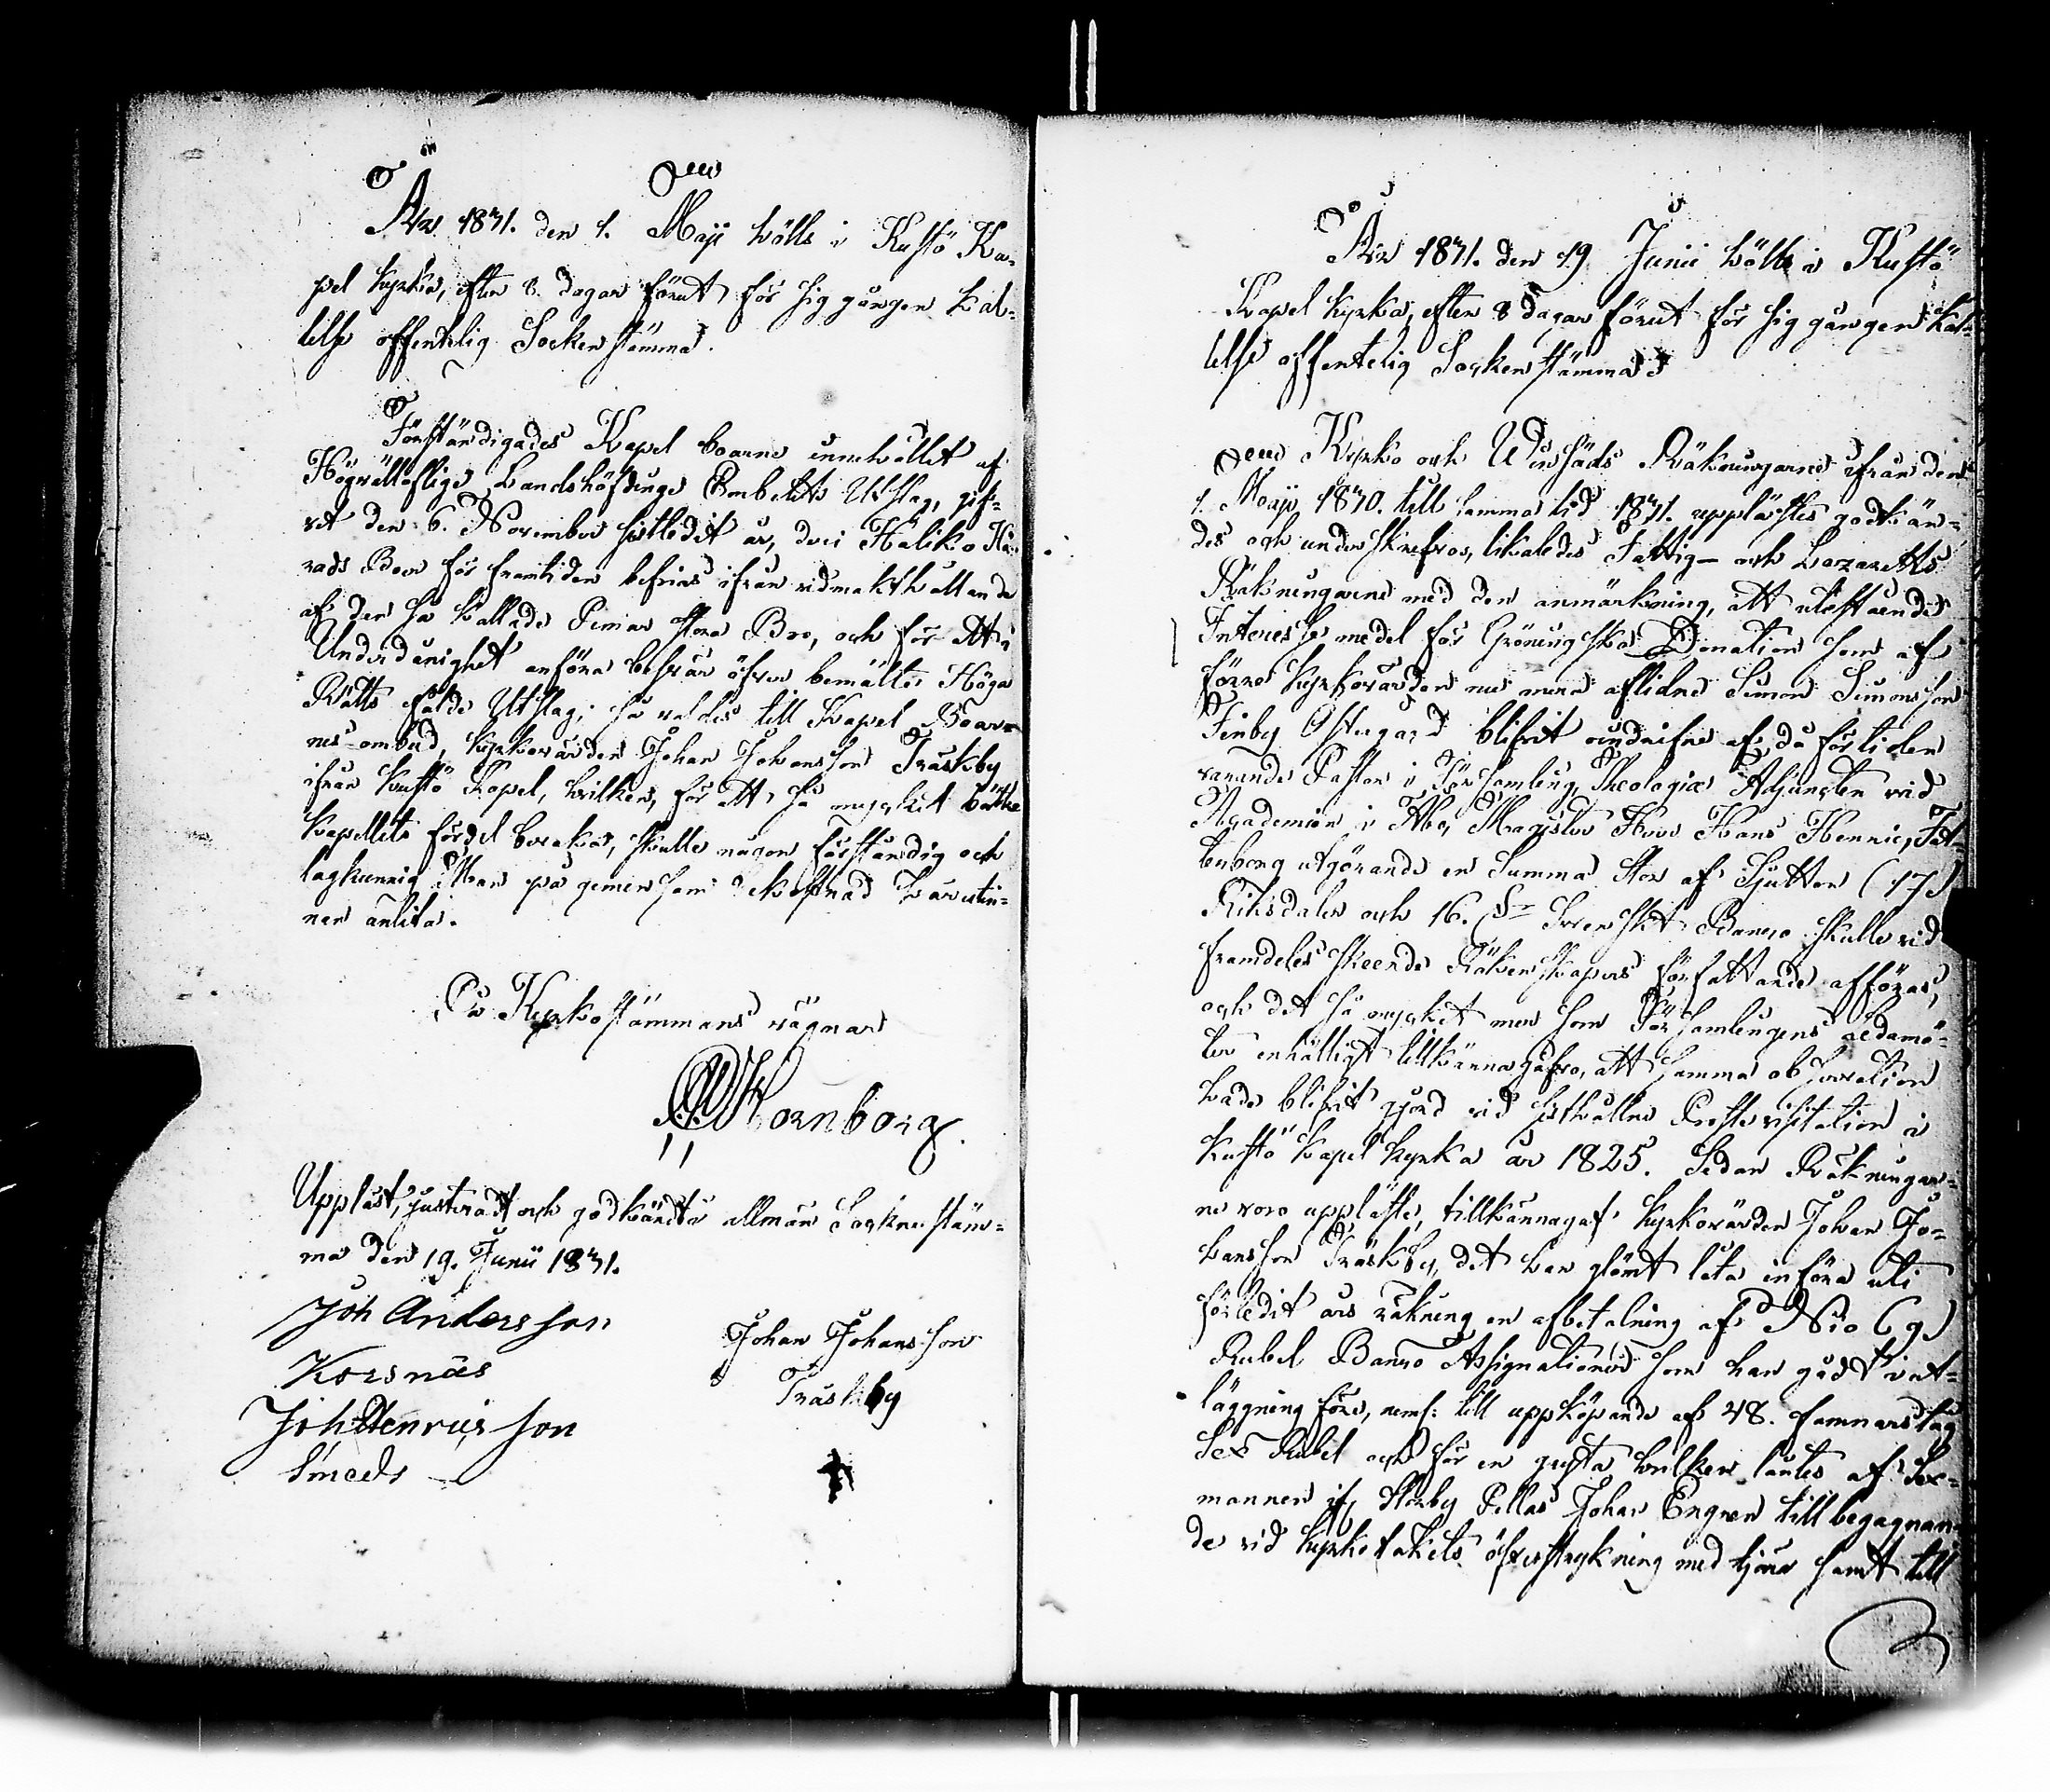 År 1831. den 1. Maji hölls i Kustö Ka-
pel kyrka, efter 8 dagar förut för sig gången kal-
telse offentelig Sockenstämma.
Förständigades Kapel boarne innehållet af
Högvällofliga Landshöfdinge Embetets Utslag, gif-
vet den 6. November sistledit år, deri Haliko Hä-
rads Boer för framtiden befrias ifrån vidmakthållande
af den så kallade Pemar stora Bro, och för att i
Underdånighet anföra besvär öfver bemälte Höga
Rätts fälde Utslag; så valdes till Kapel Boar-
nes ombud, kyrkovärden Johan Johansson Träskby
ifrån Kustö Kapel, hvilken, för att så mycket bättre
Kapellets fördel bevaka, skulle någon förståndig och
lagkunnig Man på gemensam bekostnad härutin-
nan anlita.
På Kyrkostämmans vägnar
Hornborg.
Uppläst, justeradt och godkändt i allmän Sockenstäm-
ma den 19. Junii 1831.
Joh Andersson
Korsnäs
Johan Johansson
Träskby
Joh Henricsson
Smeds
År 1831. den 19 Junii hölls i Kustö
Kapel kyrka, efter 8 dagar förut för sig gången kal-
telse offentelig Sockenstämma
Kyrko och Winsäds Räkningarne ifrån den
1. Maji 1830. till samma tid 1831. upplästes godkän-
des och underskrefvos, likaledes Fattig- och Lazaretts
Räkningarne med den anmärkning, att utestående
Interesse medel för Gröningska Donation som af
förre kyrkovärden nu mera aflidne Simon Simonsson
Finby Östergård blifvit oindrifne af då förtiden
varande Pastor i Församling, Theologiæ Adjuncten vid
Academien i Åbo, Magister Herr Hans Henric Fat-
tenborg utgörande en Summa stor af Sjutton (17)
Riksdaler och 16. s. Svenskt Banco skulle vid
framdeles skeende Räkenskapers författande afföras,
och det så mycket mer som Församlingens ledamö-
ter enhälligt tillkännagåfvo, att samma observation
hade blifvit gjord vid sisthållne Prostevisitation i
Kustö Kapel kyrka år 1825. Sedan Räkningar-
ne voro upplästa, tillkännagaf kyrkovärden Johan Jo-
hansson Träskby, det han glömt låta införa uti
förledit års räkning en afbetalning af Nio (9)
Rubel Banco Assignationer som han gådt i ut-
läggning före, neml: till uppköpande af 48. famnars tåg
Sex Rubel och för en gryta hvilken lantes af Sex-
mannen if. Storby Pellas Johan Engren till begagnan-
de vid kyrkotakets öfverstrykning med tjära samt till